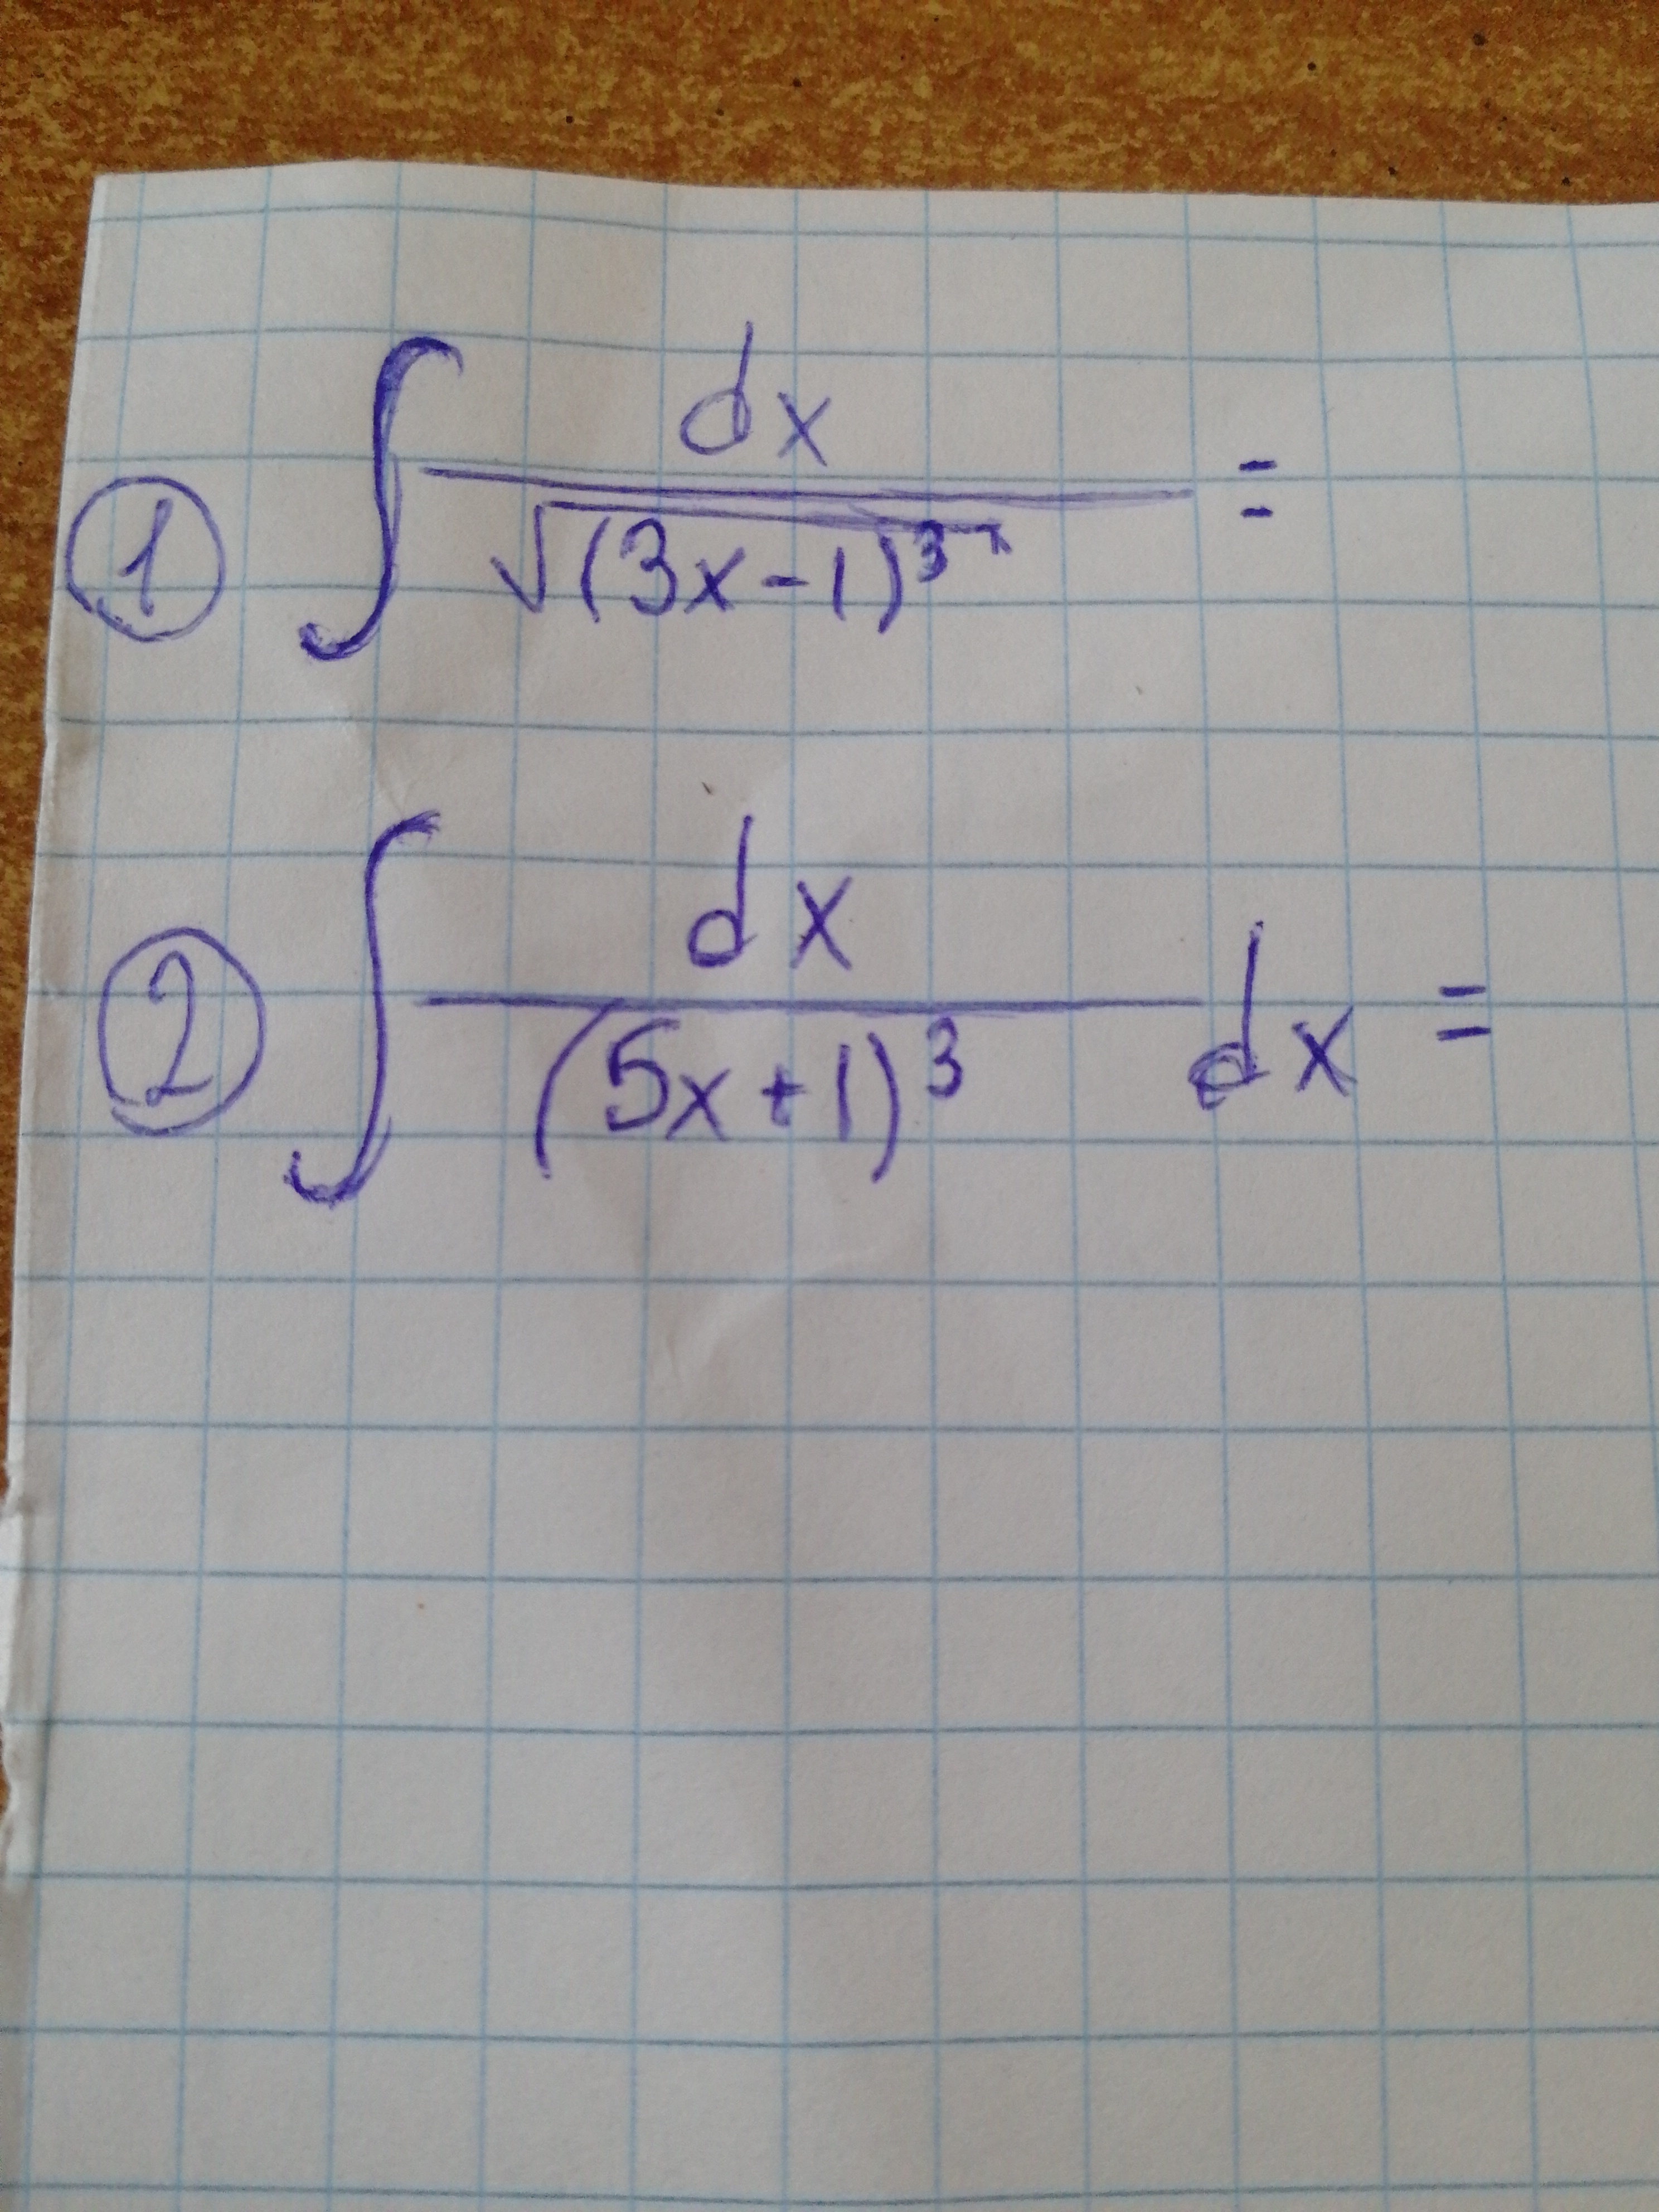 ① ∫ dx / √(3x-1)³ =
② ∫ dx / (5x+1)³ dx =